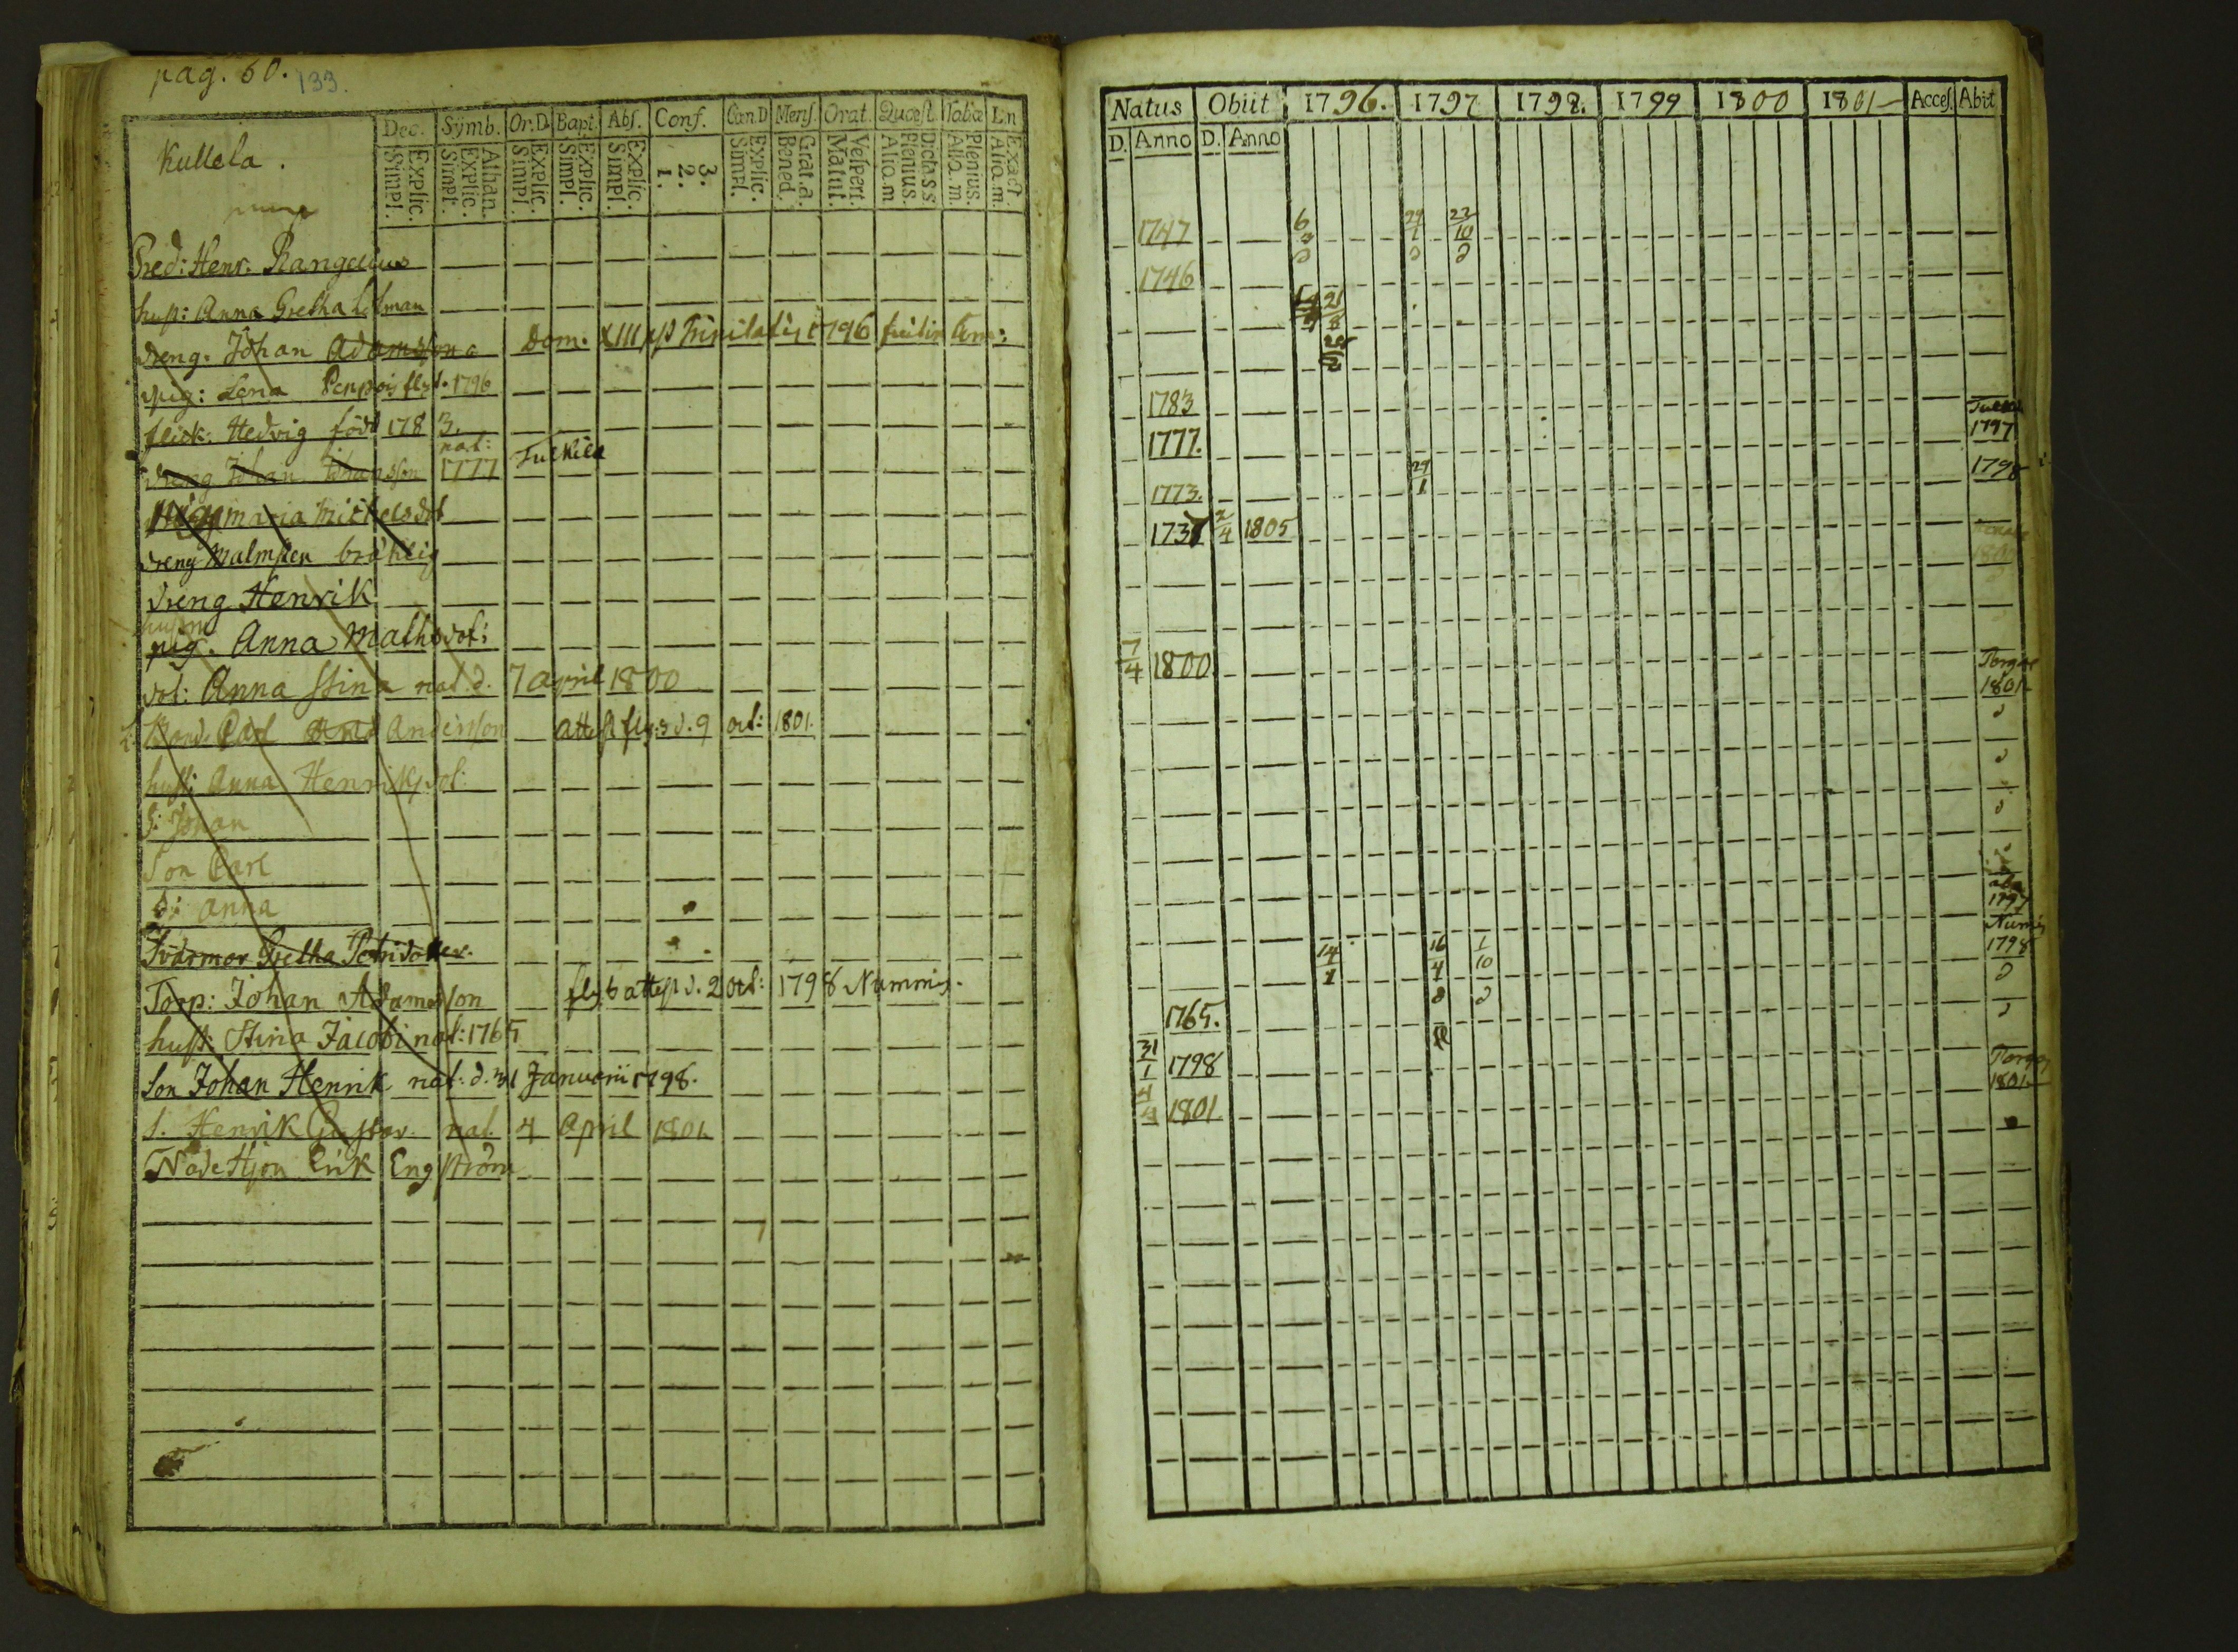 pag. 60. 133.
Kullela.
Dec. Symb. Or.D. Bapt. Abs. Conf. Cœn.D Mens. Orat. Quæst. Tabu Lin
Simpl. Explic. Simpl. Explic. Athan. Simpl. Explic. Simpl. Explic. Simpl. Explic. 1. 2. 3. Simpl. Explic. Bened. Grat.a. Matut. Vespert. Alia.m Plenius. Dicta s s Alia.m. Plenius. Alia.m. Exact.
Pred: Henr. Rangelius
hust: Anna Gretha
dreng. Johan Adamsson Dom. XIII p Trinitatis 1796
pig: Lena flyt. 1796
flick. Hedvig född 1783.
dreng Johan Johansson nat: 1777
Maria Michelsdot
dreng Malmsten bräklig
dreng Henrik
pig. Anna Mathsdot:
dot: Anna Stina nat. d. 7 April 1800
Carl Andersson attest flyt d. 9 oct: 1801.
hust: Anna Henriksdot:
S: Johan
Son Carl
D: Anna
Svärmor Gretha Petridotter.
Torp: Johan Adamsson flyt attest d. 2 Oct: 1798 Nummis.
hust: Stina Jacobi nat: 1765
Son Johan Henrik nat: d. 31 Januarii 1798.
S. Henrik Gustav. nat. 4 April 1801
Nåde Hjon Erik Engström
Natus Obiit 1796. 1797 1798. 1799 1800 1801 Acces. Abit
D. Anno D. Anno
1747 6 29 1 22 10
1746
21 8
1783
1777. 1797
1773. 29 1 1798
1737 2 4 1805
7 4 1800
1801
1797
14 1 16 4 1 10 Numis 1798
1765.
31 1 1798
4 4 1801 1801